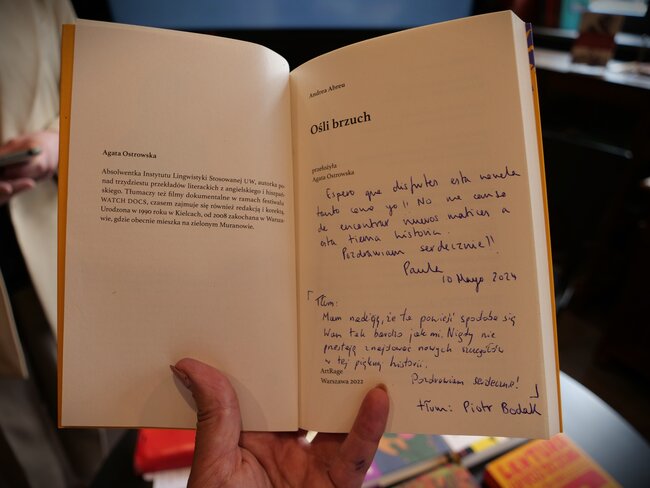 Agata Ostrowska
Absolwentka Instytutu Lingwistyki Stosowanej UW, autorka po-
nad trzydziestu przekładów literackich z angielskiego i hiszpań-
skiego. Tłumaczy też filmy dokumentalne w ramach festiwalu
WATCH DOCS, czasem zajmuje się również redakcją i korektą.
Urodzona w 1990 roku w Kielcach, od 2008 zakochana w Warsza-
wie, gdzie obecnie mieszka na zielonym Muranowie.
Andrea Abreu
Ośli brzuch
przełożyła
Agata Ostrowska
Espero que disfrutes esta novela
tanto como yo!! No me canso
de encontrar nuevos matices a
esta tierna historia.
Pozdrawiam serdecznie!!
Paula
10 Mayo 2024
Tłum:
Mam nadzieję, że ta powieść spodoba się
Wam tak bardzo jak mi. Nigdy nie
przestaję znajdować nowych szczegółów
w tej pięknej historii.
Pozdrawiam serdecznie!
tłum: Piotr Bodak
ArtRage
Warszawa 2022